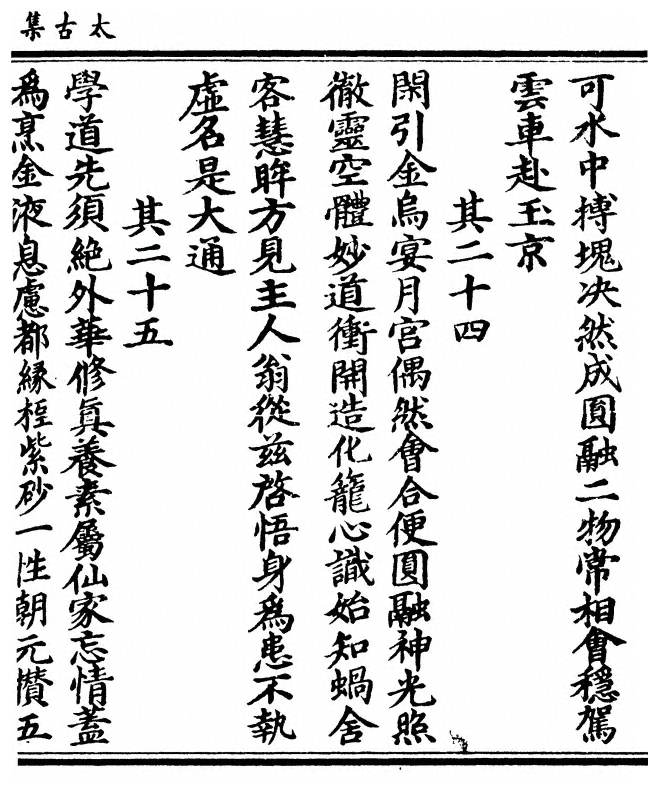 太古集
可水中摶塊决然成圎融二物常相會穩駕
雲車赴玉京
其二十四
閑引金烏宴月宮偶然會合便圎融神光照
徹靈空體妙道衝開造化籠心識始知蝸舍
客慧眸方見主人翁從兹啓悟身爲患不執
虚名是大通
其二十五
學道先須絶外華修眞養素屬仙家忘情蓋
爲烹金液息慮都緣秷紫砂一性朝元攢五